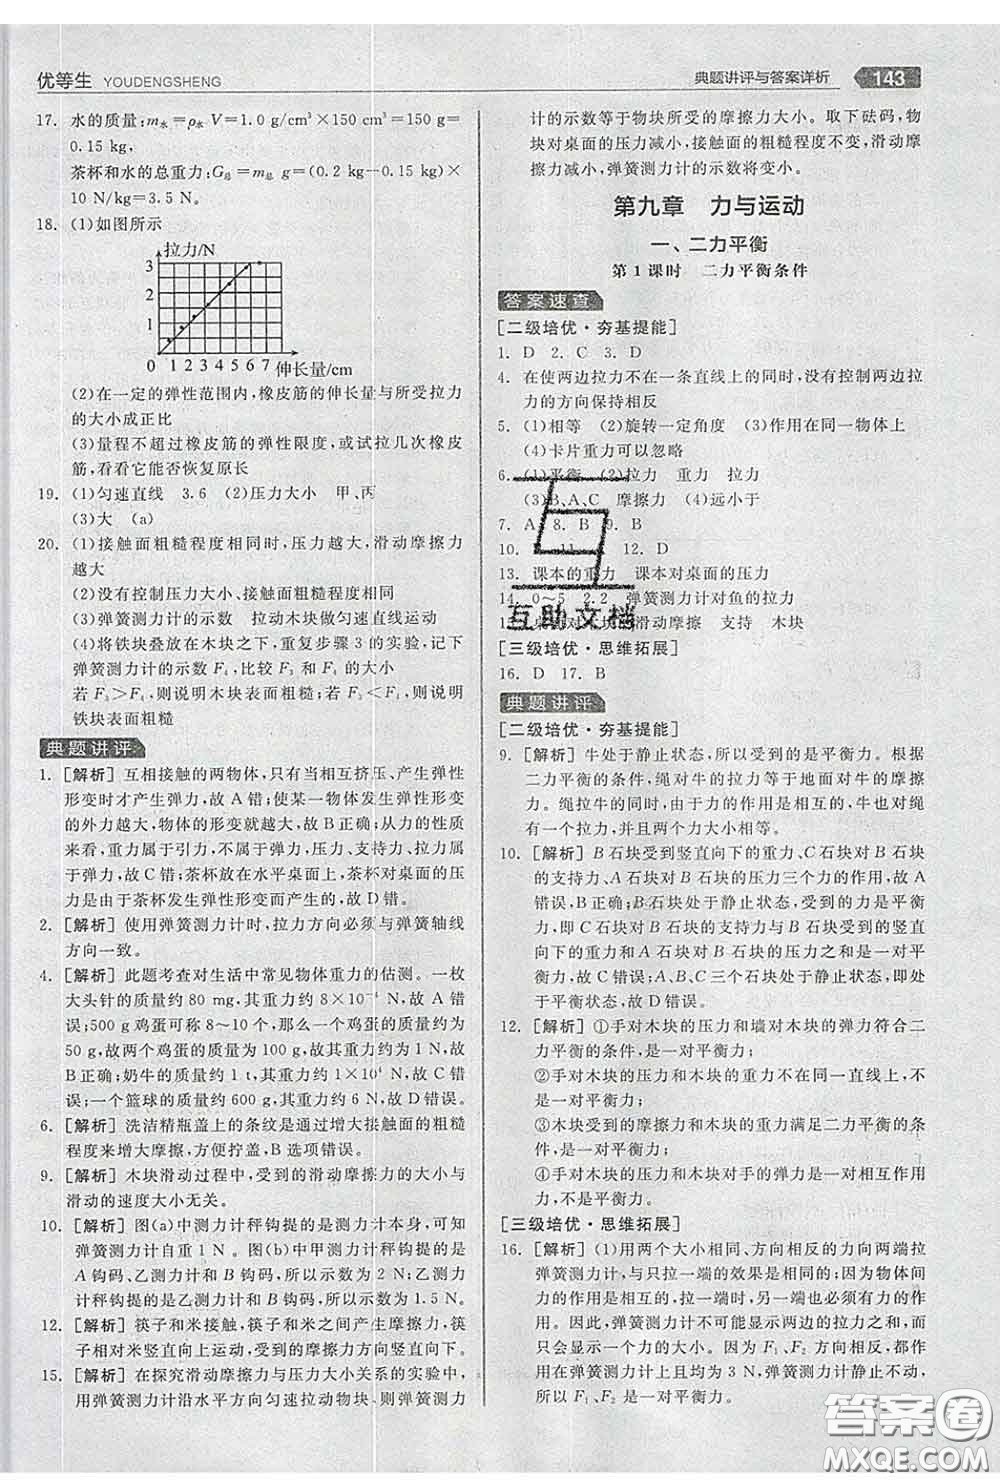 优等生 YOUDENGSHENG
典题讲评与答案详析 143
17. 水的质量:m水=ρ水 V=1.0 g/cm³×150 cm³=150 g=
0.15 kg,
茶杯和水的总重力:G总=m总 g=(0.2 kg+0.15 kg)×
10 N/kg=3.5 N。
18. (1)如图所示
拉力/N
3
2
1
0 1 2 3 4 5 6 7 8 伸长量/cm
(2)在一定的弹性范围内,橡皮筋的伸长量与所受拉力
的大小成正比
(3)量程不超过橡皮筋的弹性限度,或试拉几次橡皮
筋,看看它能否恢复原长
19. (1)匀速直线 3.6 (2)压力大小 甲、丙
(3)大 (a)
20. (1)接触面粗糙程度相同时,压力越大,滑动摩擦力
越大
(2)没有控制压力大小、接触面粗糙程度相同
(3)弹簧测力计的示数 拉动木块做匀速直线运动
(4)将铁块叠放在木块之下,重复步骤 3 的实验,记下
弹簧测力计的示数 F₄,比较 F₃ 和 F₄ 的大小
若 F₃>F₄,则说明木块表面粗糙;若 F₃<F₄,则说明
铁块表面粗糙
典题讲评
1. [解析] 互相接触的两物体,只有当相互挤压、产生弹性
形变时才产生弹力,故 A 错;使某一物体发生弹性形变
的外力越大,物体的形变就越大,故 B 正确;从力的性质
来看,重力属于引力,不属于弹力,压力、支持力、拉力属
于弹力,故 C 错;茶杯放在水平桌面上,茶杯对桌面的压
力是由于茶杯发生弹性形变而产生的,故 D 错。
2. [解析] 使用弹簧测力计时,拉力方向必须与弹簧轴线
方向一致。
4. [解析] 此题考查对生活中常见物体重力的估测。一枚
大头针的质量约 80 mg,其重力约 8×10⁻⁴ N,故 A 错
误;500 g 鸡蛋可称 8～10 个,那么一个鸡蛋的质量约为
50 g,故两个鸡蛋的质量约为 100 g,其重力约为 1 N,故
B 正确;奶牛的质量约 1 t,其重力约 1×10⁴ N,故 C 错
误;一个篮球的质量约 600 g,其重力约 6 N,故 D 错误。
6. [解析] 洗洁精瓶盖上的条纹是通过增大接触面的粗糙
程度来增大摩擦力,方便拧盖,B 选项错误。
9. [解析] 木块滑动过程中,受到的滑动摩擦力的大小与
滑动的速度大小无关。
10. [解析] 图(a)中测力计秤钩提的是测力计本身,可知
弹簧测力计自重 1 N。图(b)中甲测力计秤钩提的是
A 钩码、乙测力计和 B 钩码,所以示数为 2 N;乙测力
计秤钩提的是乙测力计和 B 钩码,故示数为 1.5 N。
12. [解析] 筷子和米接触,筷子和米间产生摩擦力,筷
子相对米竖直向上运动,受到的摩擦力方向竖直向下。
15. [解析] 在探究滑动摩擦力与压力大小关系的实验中,
用弹簧测力计沿水平方向匀速拉动物块,弹簧测力
计的示数等于物块所受的摩擦力大小。取下砝码,物
块对桌面的压力减小,接触面的粗糙程度不变,滑动摩
擦力减小,弹簧测力计的示数将变小。
第九章 力与运动
一、二力平衡
第 1 课时 二力平衡条件
答案速查
[二级培优·夯基提能]
1. D 2. C 3. D
4. 在使两边拉力不在一条直线上的同时,没有控制两边拉
力的方向保持相反
5. (1)相等 (2)旋转一定角度 (3)作用在同一物体上
(4)卡片重力可以忽略
6. (1)平衡 (2)拉力 重力 拉力
(3)B、A、C 摩擦力 (4)远小于
7. A 8. B 9. B
10. 11. 12. D
13. 课本的重力 课本对桌面的压力
14. 0～5 2.2 弹簧测力计对鱼的拉力
木块的滑动摩擦 支持 木块
[三级培优·思维拓展]
16. D 17. B
典题讲评
[二级培优·夯基提能]
9. [解析] 牛处于静止状态,所以受到的是平衡力。根据
二力平衡的条件,绳对牛的拉力等于地面对牛的摩擦
力。绳拉牛的同时,由于力的作用是相互的,牛也对绳
有一个拉力,并且两个力大小相等。
10. [解析] B 石块受到竖直向下的重力、C 石块对 B 石块
的支持力和 A 石块对 B 石块的压力三个力的作用,故 A
错误,B 正确;B 石块处于静止状态,受到的是平衡
力,所以 C 石块对 B 石块的支持力与 B 石块受到的竖直
向下的重力和 A 石块对 B 石块的压力之和是一对平
衡力,故 C 错误;A、B、C 三个石块处于静止状态,即处
于平衡状态,故 D 错误。
12. [解析] ①手对木块的压力和墙对木块的弹力符合二
力平衡的条件,是一对平衡力;
②手对木块的压力和木块的重力不在同一直线上,不
是一对平衡力;
③木块受到的摩擦力和木块的重力满足二力平衡的条
件,是一对平衡力;
④手对木块的压力和木块对手的压力是一对相互作用
力,不是平衡力。
[三级培优·思维拓展]
16. [解析] (1)用两个大小相同、方向相反的力向两端拉
弹簧测力计,与只拉一端的效果是相同的;因为物体间
力的作用是相互的,拉一端时,另一端也必须有力的作
用。因此,弹簧测力计不可能显示两边的拉力之和,而
只能显示一边的力的大小,即应为 3 N。(2)由于最终
弹簧测力计与其受到的均为 3 N,弹簧测力计静止不动,
所以 F₁ 和 F₂ 的合力为零。
互助文档
答案圈
MXQE.COM